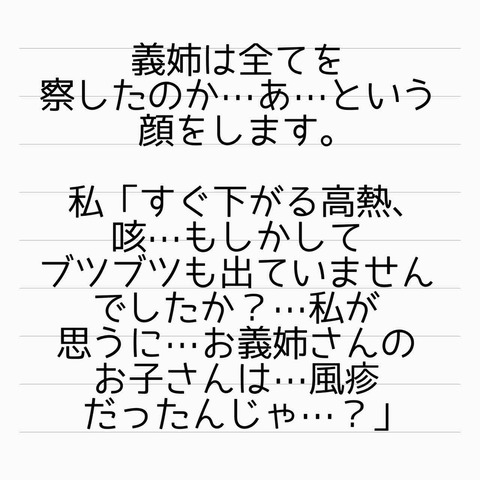 義姉は全てを
察したのか…あ…という
顔をします。
私「すぐ下がる高熱、
咳…もしかして
ブツブツも出ていません
でしたか？…私が
思うに…お義姉さんの
お子さんは…風疹
だったんじゃ…？」